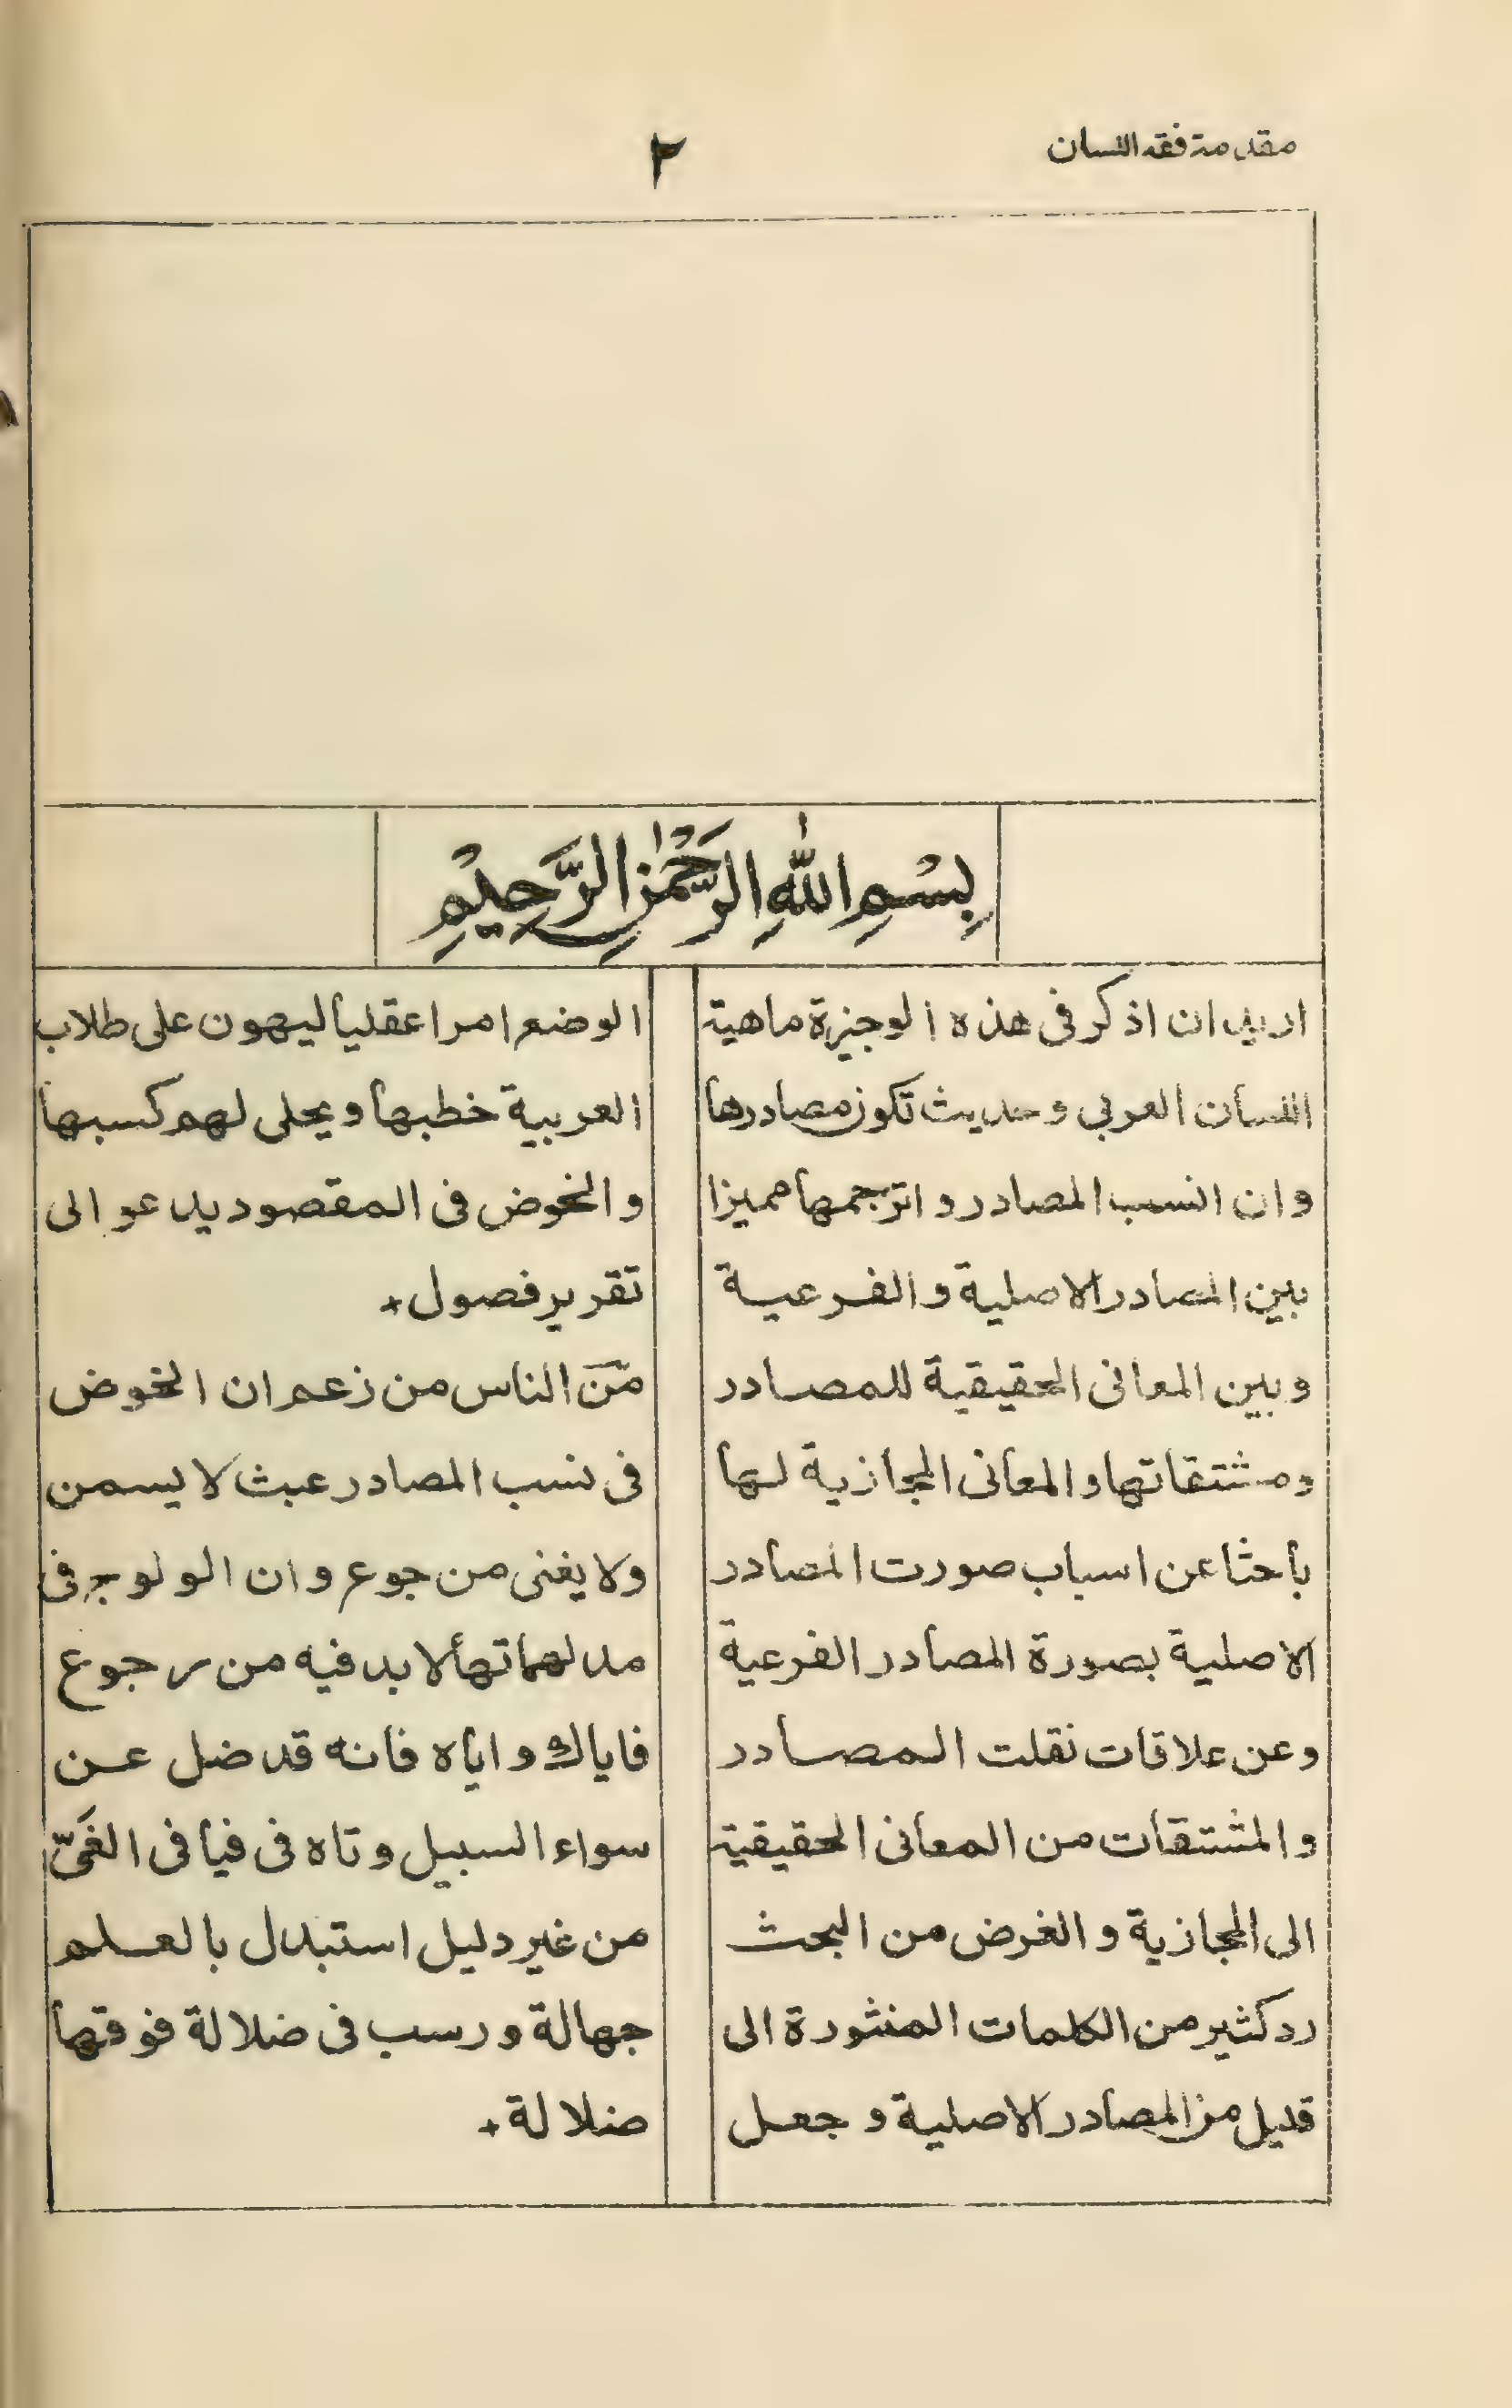 مقدمة فقه اللسان
٢
بِسْمِ اللّٰهِ الرَّحْمٰنِ الرَّحِيْمِ
اريد ان اذكر فى هذه الوجيزة ماهية
اللسان العربى وحديث تكون مصادرها
وان انسب المصادر واترجمها مميزا
بين المصادر الاصلية والفرعية
وبين المعانى الحقيقية للمصادر
ومشتقاتها والمعانى المجازية لها
باحثا عن اسباب صورت المصادر
الاصلية بصورة المصادر الفرعية
وعن علاقات نقلت المصادر
والمشتقات من المعانى الحقيقية
الى المجازية والغرض من البحث
رد كثير من الكلمات المنثورة الى
قليل من المصادر الاصلية وجعل
الوضع امرا عقليا ليهون على طلاب
العربية خطبها ويحلى لهم كسبها
والخوض فى المقصود يدعو الى
تقرير فصول+
من الناس من زعم ان الخوض
فى نسب المصادر عبث لا يسمن
ولا يغنى من جوع وان الولوج فى
مدلهماتها لا بد فيه من رجوع
فاياك واياه فانه قد ضل عن
سواء السبيل وتاه فى فيافى الغىّ
من غير دليل استبدل بالعلم
جهالة ورسب فى ضلالة فوقها
ضلالة+